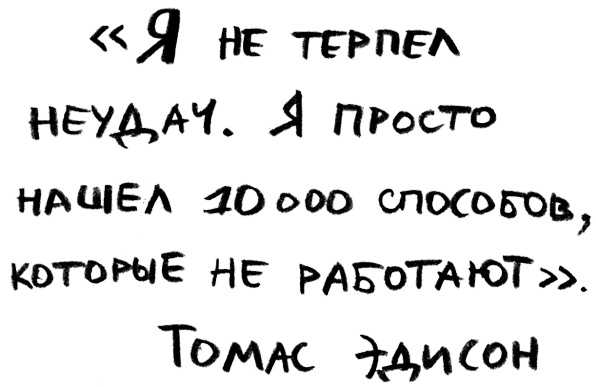 «Я НЕ ТЕРПЕЛ
НЕУДАЧ. Я ПРОСТО
НАШЕЛ 10 000 СПОСОБОВ,
КОТОРЫЕ НЕ РАБОТАЮТ».
ТОМАС ЭДИСОН